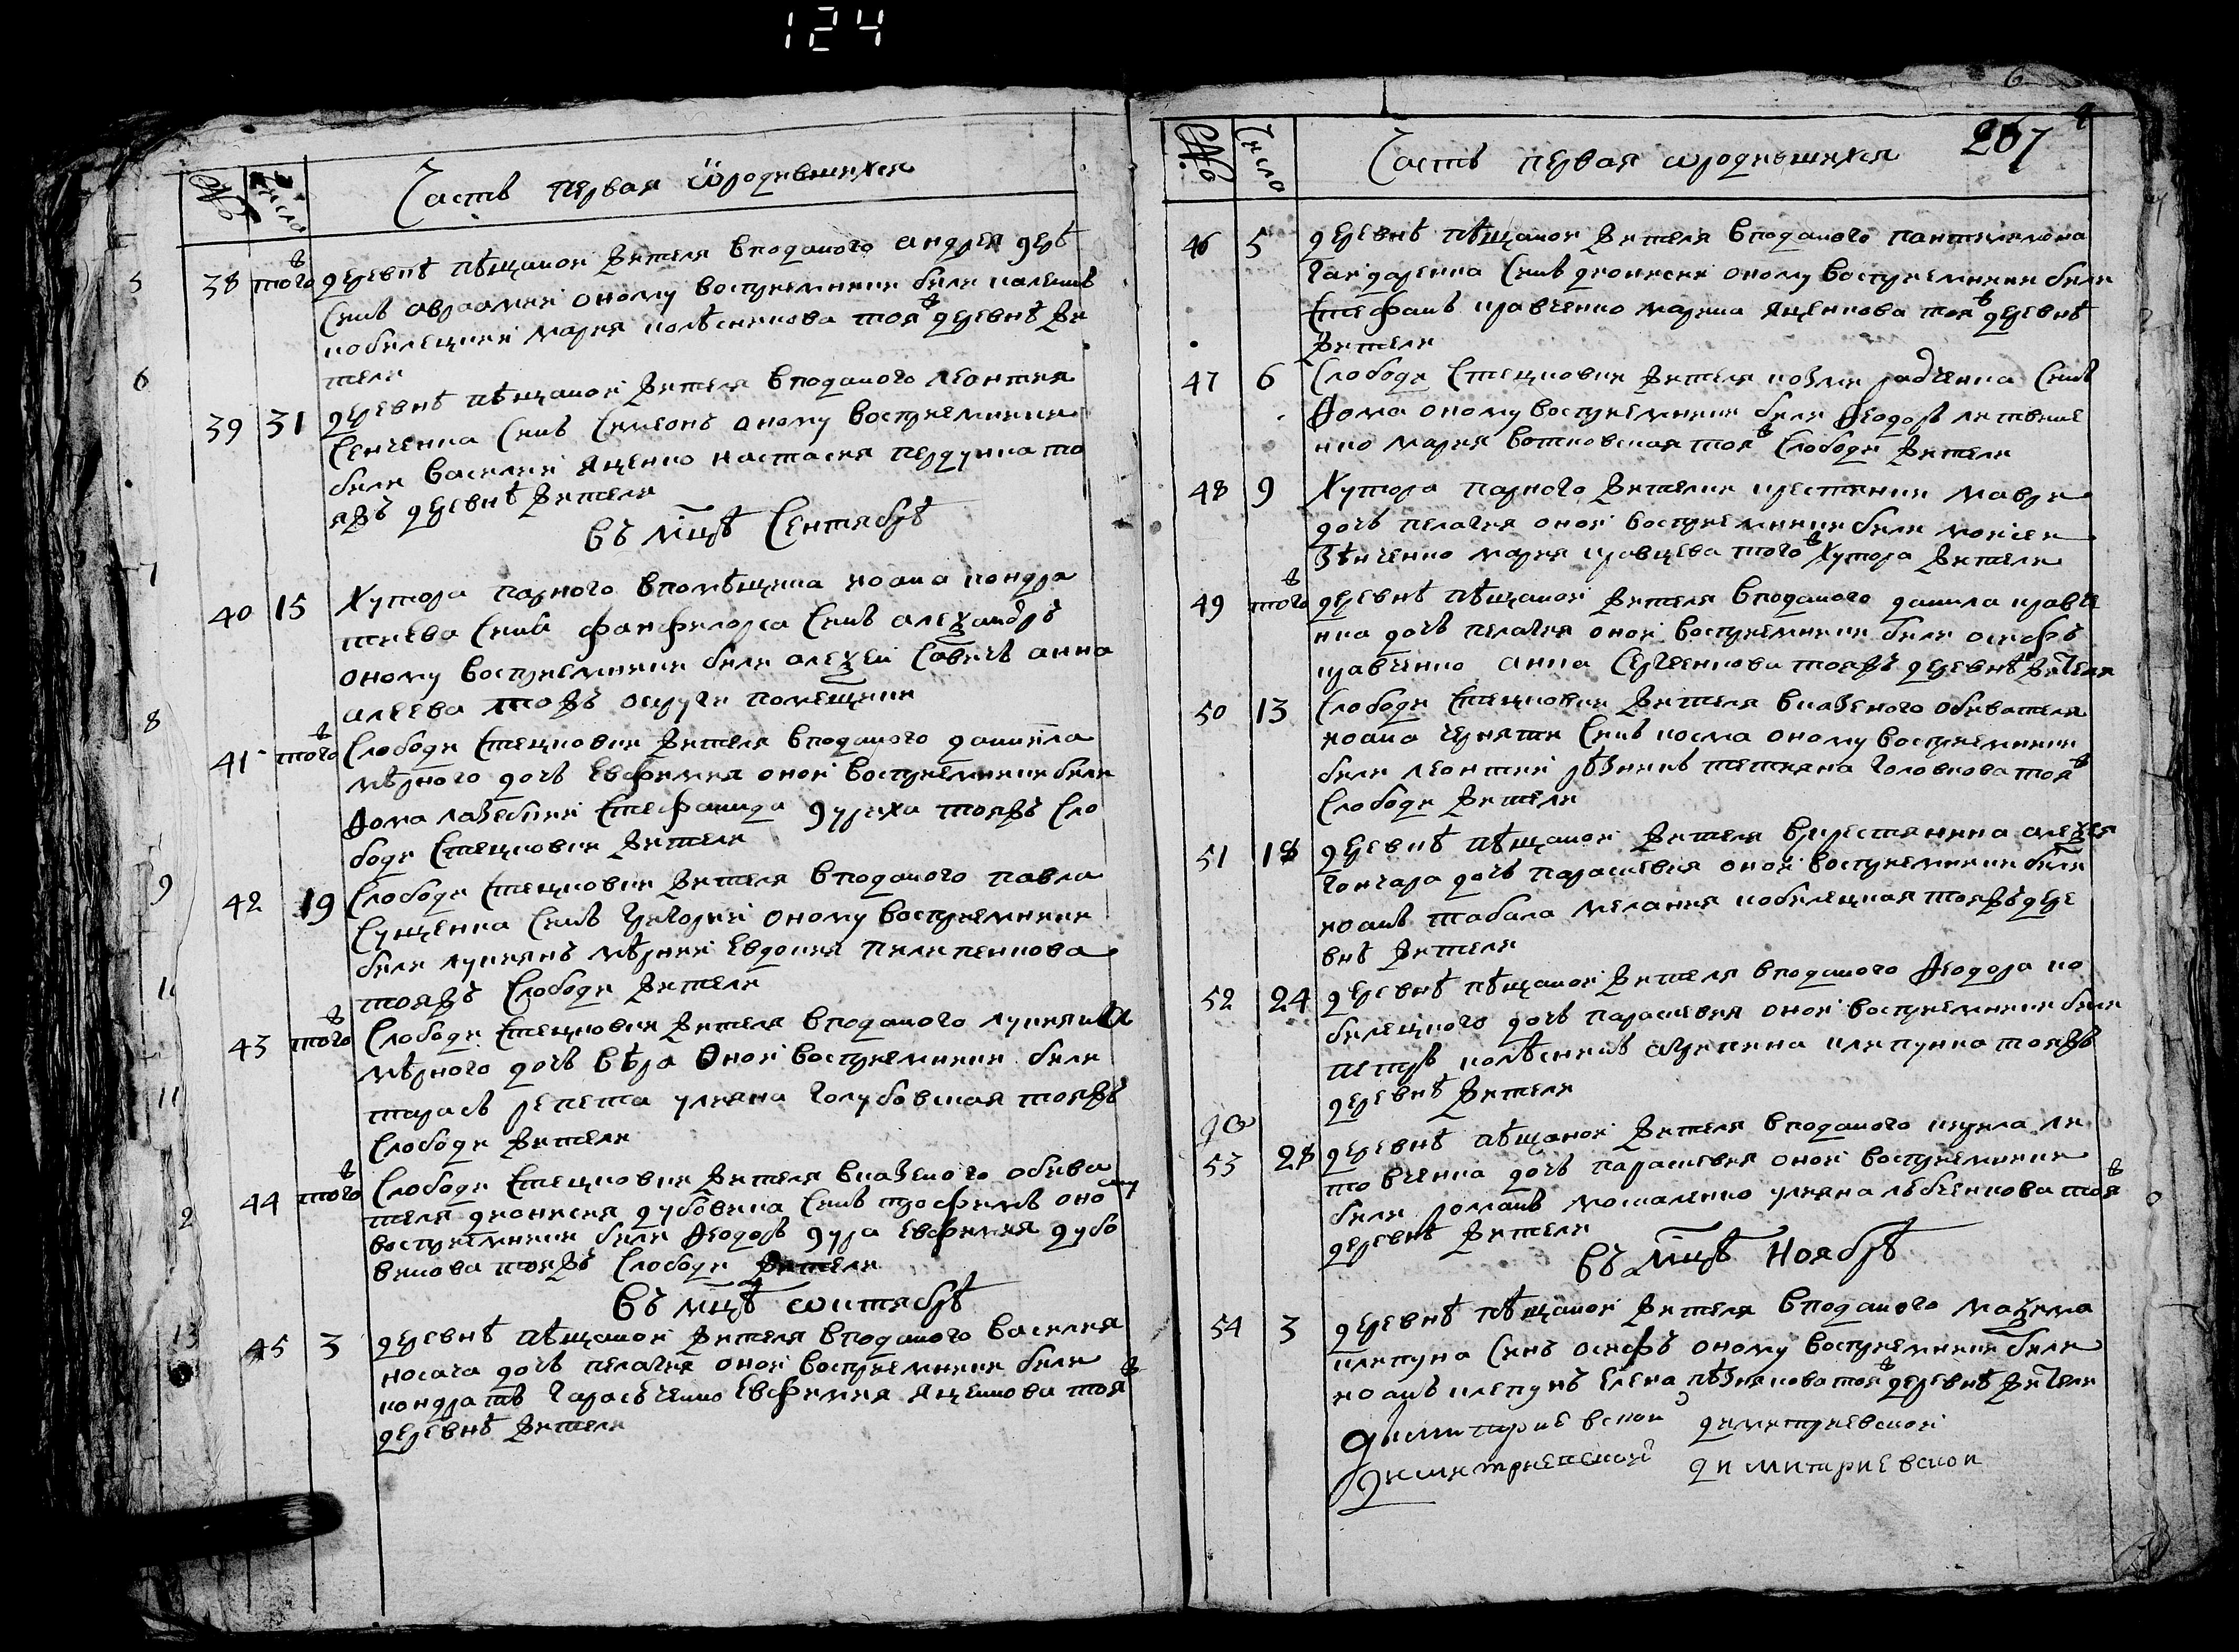 124
№ Число Часть первая ѡродившихся
38 тогож деревнѣ пѣщаной жителя вподаного андрея
синъ авраамий оному восприемники били
кобилецкий мария колѣсникова тояж деревнѣ жи
тели
39 31 деревнѣ пѣщаной жителя вподаного леонтия
сенченка синъ симеонъ оному восприемники
били василий яценко настасия пердунка то
яжъ деревнѣ жители
Въ мцѣ Сентябрѣ
40 15 Хутора парного впомѣщика иоана кондра
тиева сина синъ алеѯандръ
оному восприемники били алеѯей Савичъ анна
алеева тояжъ округи помещики
41 тогож Слободи стецковки жителя вподаного даниила
мѣрного дочь евфимия оной восприемники били
Ѳома лазебний стефанида дуриха тояжъ сло
боди стецковки жители
42 19 Слободи стецковки жителя вподаного павла
сущенка синъ григорий оному восприемники
били лукиянъ мѣрний евдокия пилипенкова
тояжъ слободи жители
43 тогож Слободи стецковки жителя вподаного лукияна
мѣрного дочь вѣра оной восприемники били
тарасъ репета улияна голубовская тояжъ
слободи жители
44 тогож Слободи стецковки жителя вказеного обива
теля дионисия дубовика синъ трофимъ оному
восприемники били Ѳеодоръ дура евфимия дубо
викова тояжъ слободи жители
Въ мцѣ ѡктябрѣ
45 3 деревнѣ пѣщаной жителя вподаного василия
носача дочь пелагия оной восприемники били
кондратъ гарасѣченко евфимия яценкова тояж
деревнѣ жители
6
№ Число Часть первая ѡродившихся 267
46 5 деревнѣ пѣщаной жителя вподаного пантелимона
гайдаренка синъ дионисий оному восприемники били
стефанъ кравченко марина яценкова тояж деревнѣ
жители
47 6 Слободи стецковки жителя козми рабченка синъ
Ѳома оному восприемники били Ѳеодоръ литвине
нко мария вотковская тояж слободи жители
48 9 Хутора парного жителки крестянки маври
дочь пелагия оной восприемники били моисей
зѣнченко мария кравцева того Хутора жители
49 тогож деревнѣ пѣщаной жителя вподаного данила кравче
нка дочь пелагия оной восприемники били осифъ
кравченко анна сергеенкова тояжъ деревнѣ жители
50 13 Слободи стецковки жителя вказеного обивателя
иоана черняти синъ косма оному восприемники
били леонтий рѣзникъ тетияна головкова тояж
слободи жители
51 18 деревнѣ пѣщаной жителя вкрестянина алеѯея
гончара дочь параскевия оной восприемники били
иоанъ табала мелания кобилецкая тояжъ дере
внѣ жители
52 24 деревнѣ пѣщаной жителя вподаного Ѳеодора ко
билецкого дочь параскевия оной восприемники били
петръ колѣсникъ агрипина клипунка тояжъ
деревнѣ жители
53 28 деревнѣ пѣщаной жителя вподаного кирила ли
товченка дочь параскевия оной восприемники
били романъ москаленко улияна лѣбченкова тояж
деревнѣ жители
Въ мцѣ Ноябрѣ
54 3 деревнѣ пѣщаной жителя вподаного маѯима
клипуна синъ осифъ оному восприемники били
иоанъ клепунъ елена рѣзникова тояж деревнѣ жители
димитриевской димитриевской
димитриевской димитриевской